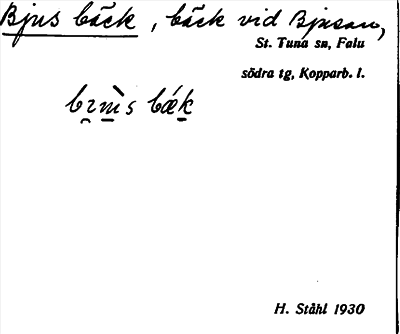 Bjus bäck, bäck vid Bjusan,
St. Tuna sn, Falu
södra tg, Kopparb. l.
H. Ståhl 1930